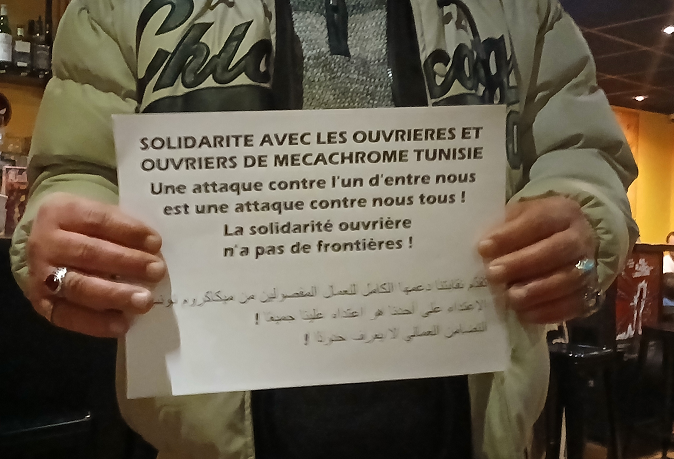 Chic
cago
SOLIDARITE AVEC LES OUVRIERES ET
OUVRIERS DE MECACHROME TUNISIE
Une attaque contre l'un d'entre nous
est une attaque contre nous tous !
La solidarité ouvrière
n'a pas de frontières !
تقدّم نقابتنا دعمها الكامل للعمال المفصولين من ميكاكروم تونس
الاعتداء على أحدنا هو اعتداء علينا جميعًا !
التضامن العمالي لا يعرف حدودًا !